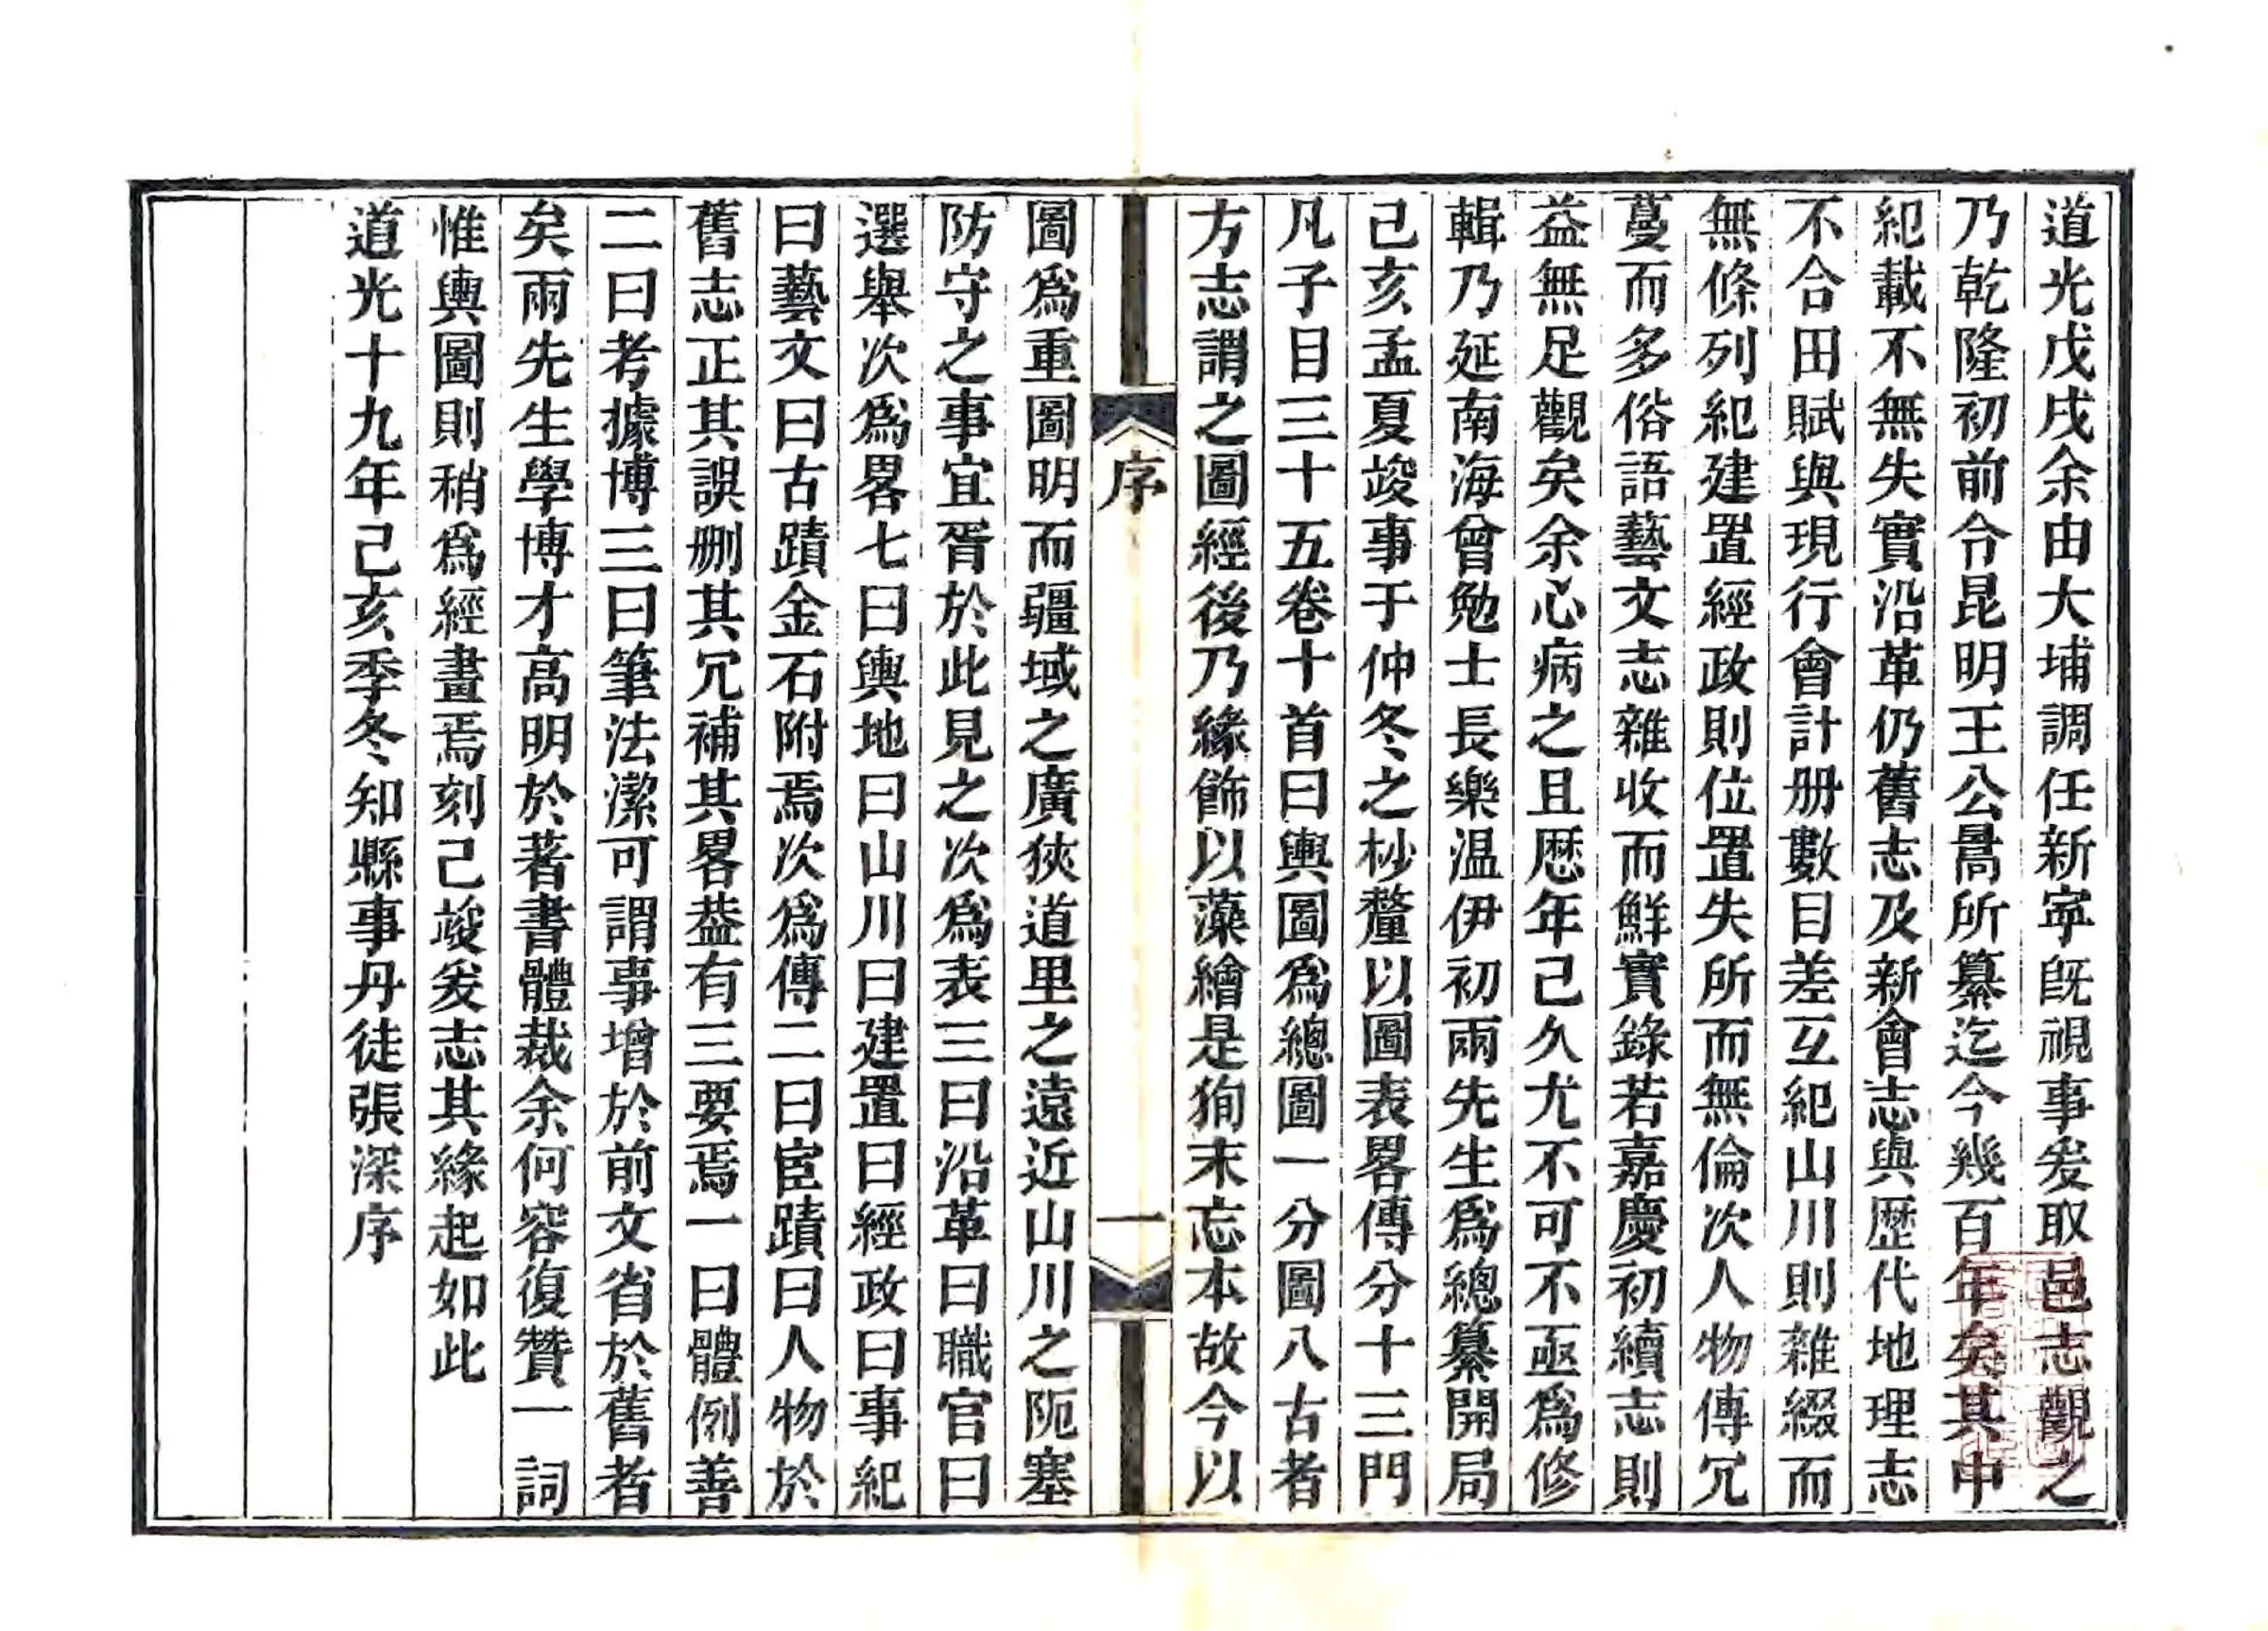 道光戊戌余由大埔調任新寜旣視事爰取邑志觀之
乃乾隆初前令昆明王公暠所纂迄今幾百年矣其中
紀載不無失實沿革仍舊志及新會志與歴代地理志
不合田賦與現行會計册數目差互紀山川則雜綴而
無條列紀建置經政則位置失所而無倫次人物傳冗
蔓而多俗語藝文志雜收而鮮實錄若嘉慶初續志則
益無足觀矣余心病之且歴年己久尤不可不亟爲修
輯乃延南海曾勉士長樂温伊初兩先生爲總纂開局
己亥孟夏竣事于仲冬之杪釐以圖表畧傳分十三門
凡子目三十五卷十首曰輿圖爲總圖一分圖八古者
方志謂之圖經後乃緣飾以藻繪是狥末忘本故今以
序
一
圖爲重圖明而疆域之廣狹道里之遠近山川之阨塞
防守之事宜胥於此見之次爲表三曰沿革曰職官曰
選舉次爲畧七曰輿地曰山川曰建置曰經政曰事紀
曰藝文曰古蹟金石附焉次爲傳二曰宦蹟曰人物於
舊志正其誤删其冗補其畧葢有三要焉一曰體例善
二曰考據博三曰筆法潔可謂事增於前文省於舊者
矣兩先生學博才高明於著書體裁余何容復贊一詞
惟輿圖則稍爲經畫焉刻己竣爰志其緣起如此
道光十九年己亥季冬知縣事丹徒張深序